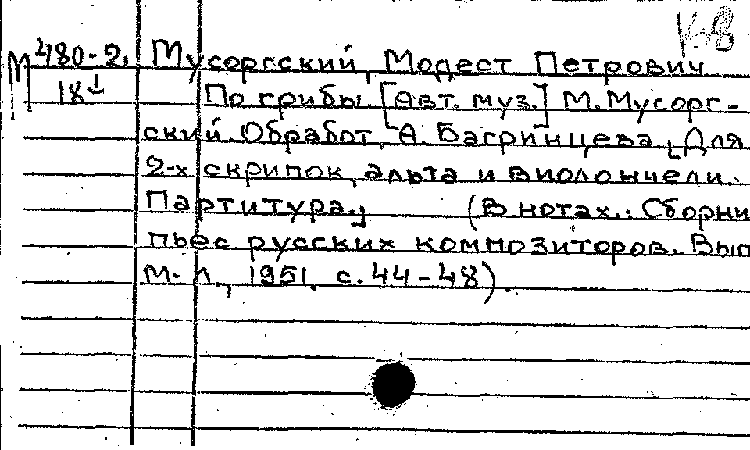 К-В
М 480-2. Мусоргский, Модест Петрович
18 По грибы [Авт. муз.] М. Мусорг-
ский. Обработ. А. Багринцева [Для
2-х скрипок, альта и виолончели.
Партитура.] (В нотах: Сборни
пьес русских композиторов. Вып
М.-Л., 1951. с. 44-48).